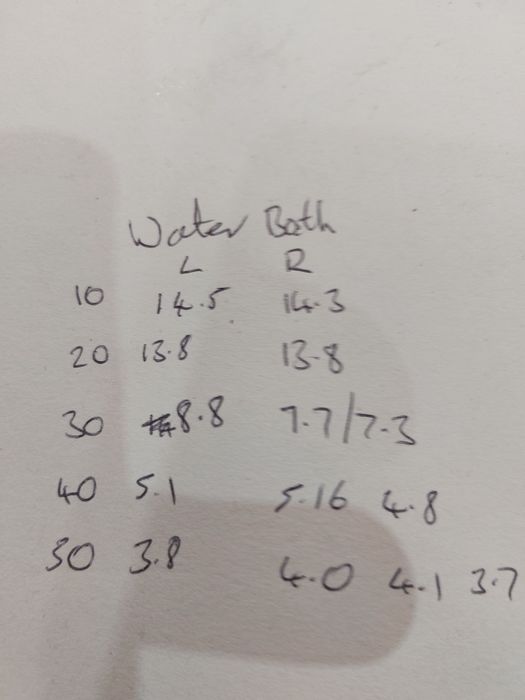 Water Bath
L R
10 14.5 14.3
20 13.8 13.8
30 8.8 7.7/7.3
40 5.1 5.16 4.8
50 3.8 4.0 4.1 3.7